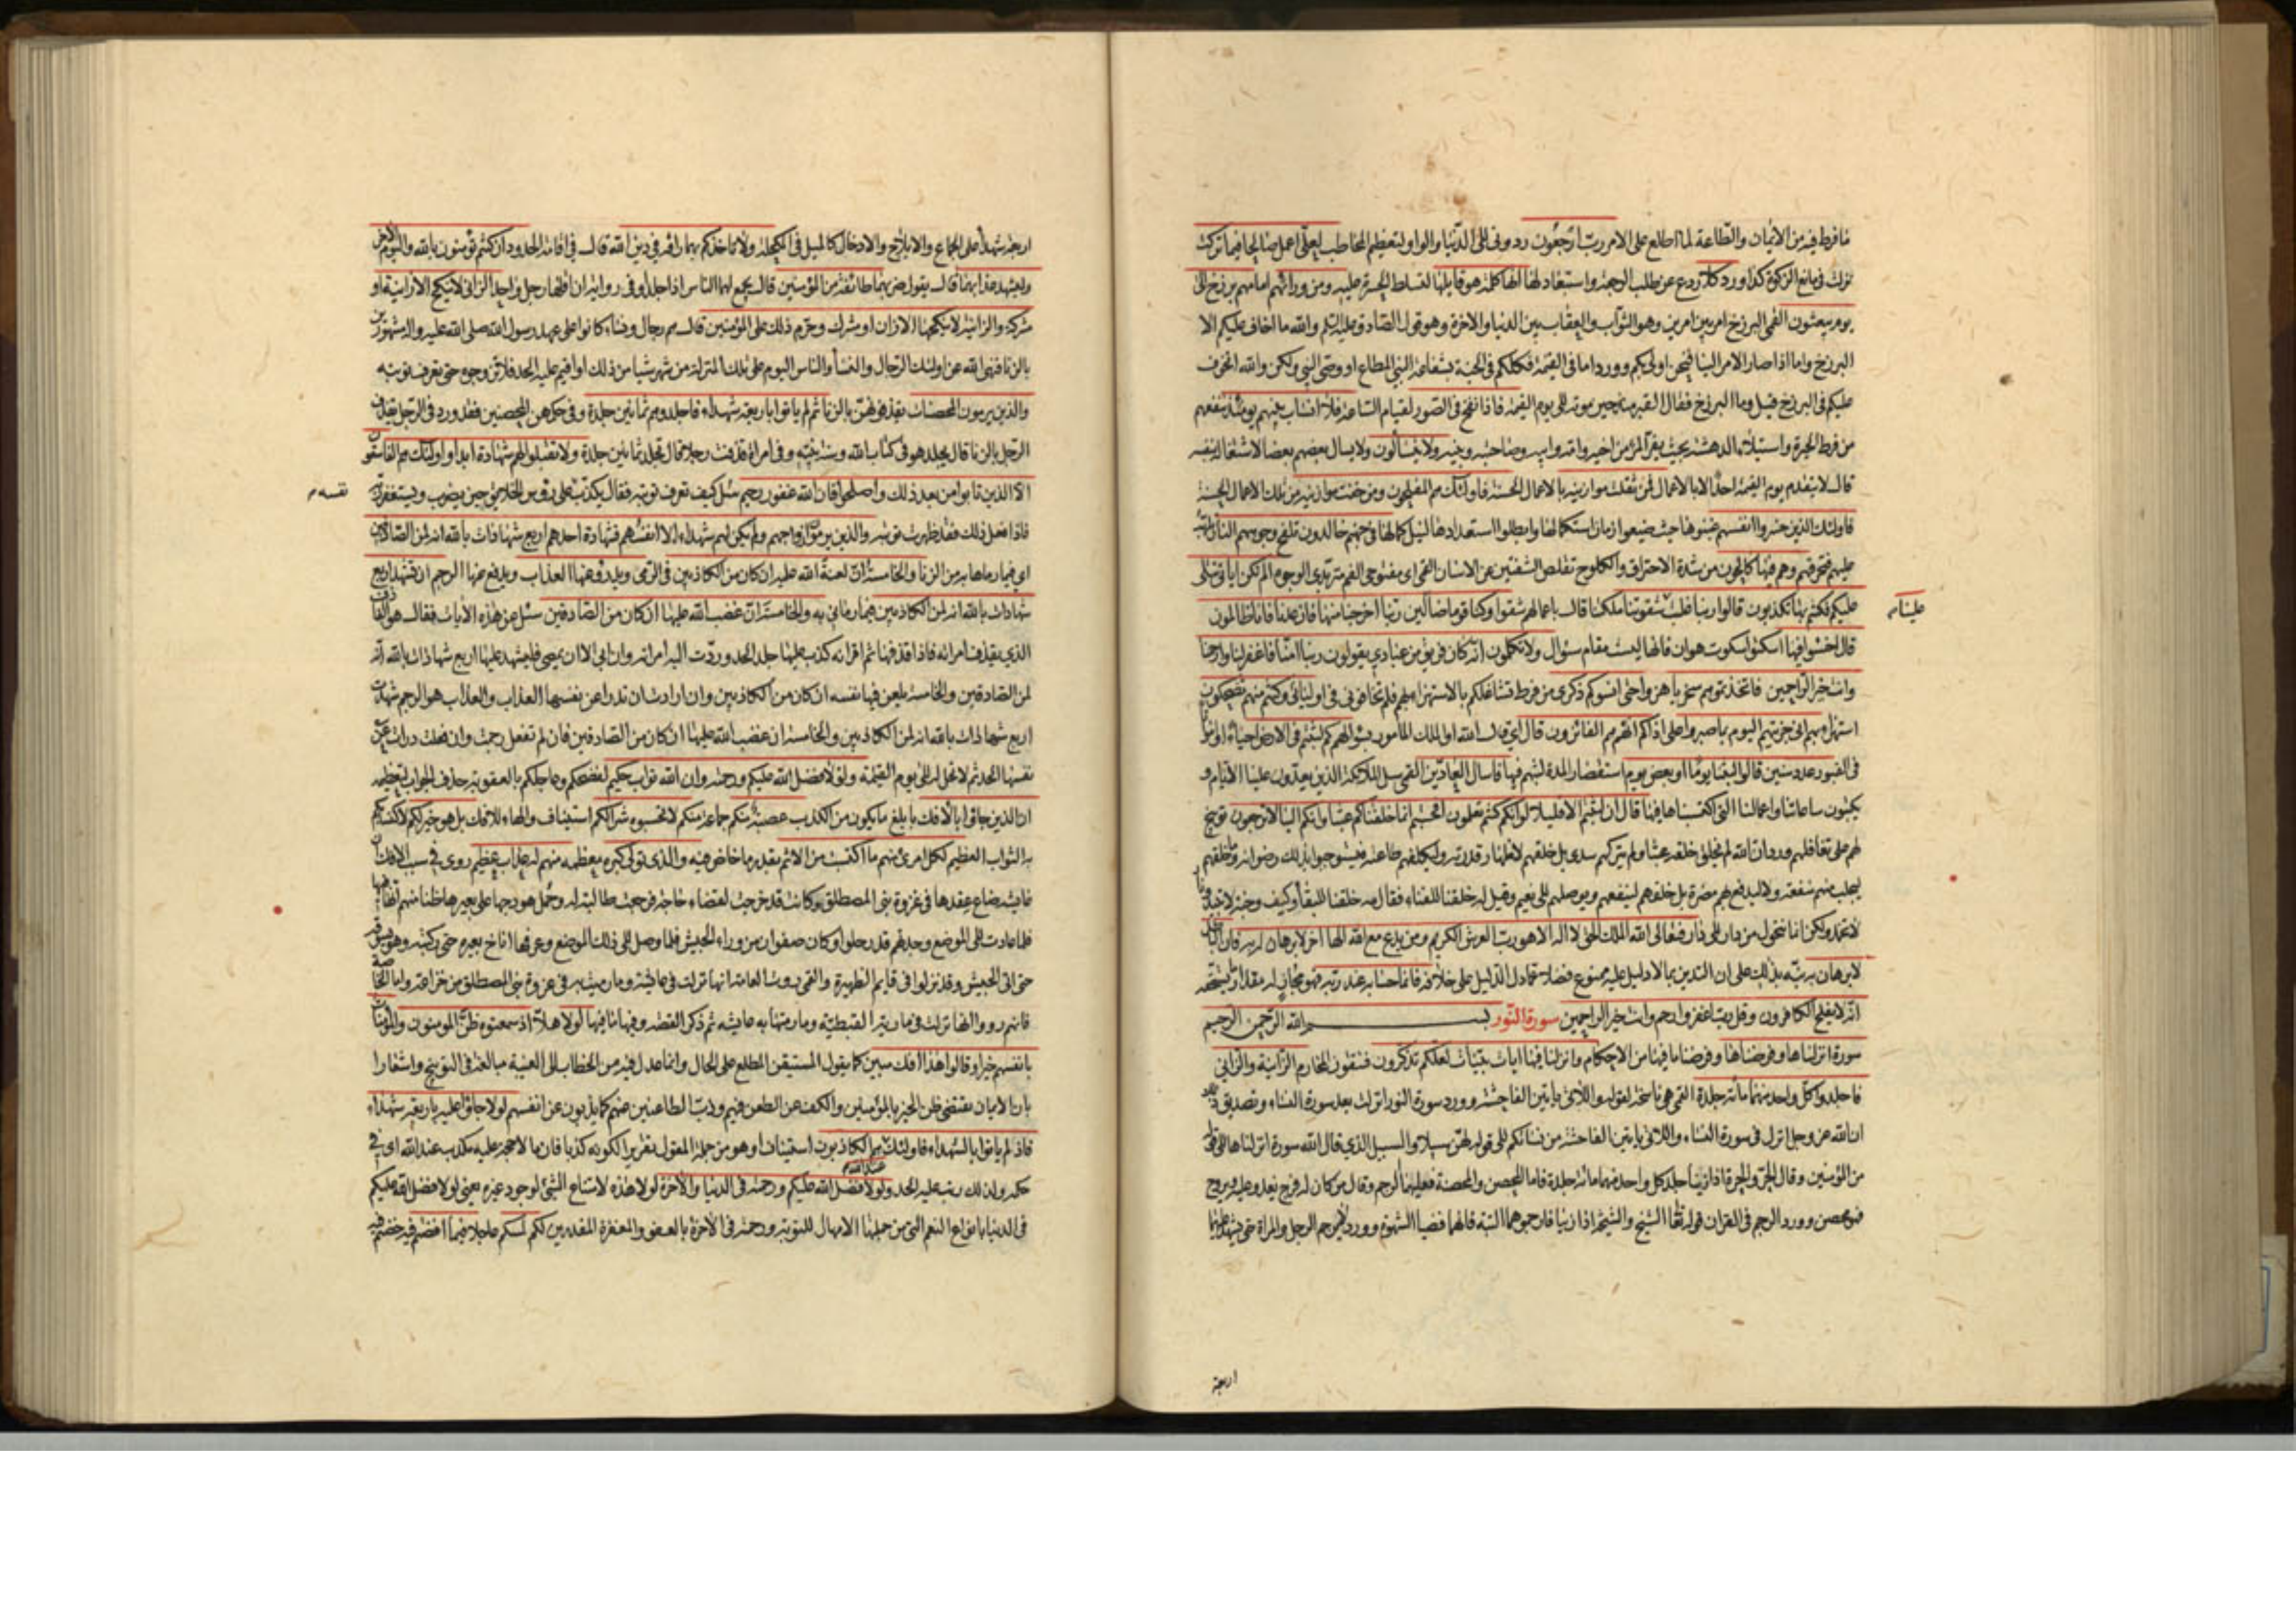 ما فرط فيه من الايمان والطاعة لما اطلع على الامر رب ارجعون ردونى الى الدنيا والواو لتعظيم المخاطب لعلى اعمل صالحا فيما تركت
نزلت فى مانع الزكوة كذا ورد كلا ردع عن طلب الرجعة واستبعاد لها انها كلمة هو قايلها لتسلط الحسرة عليه ومن ورائهم امامهم برزخ الى
يوم يبعثون القمى البرزخ امر بين امرين وهو الثواب والعقاب بين الدنيا والاخرة وهو قول الصادق عليه السلم والله ما اخاف عليكم الا
البرزخ واما اذا صار الامر الينا فنحن اولى بكم وورد اما فى القيمة فكلكم فى الجنة بشفاعة النبى المطاع او وصى النبى ولكن والله اتخوف
عليكم فى البرزخ قيل وما البرزخ فقال القبر منذ حين موته الى يوم القيمة فاذا نفخ فى الصور لقيام الساعة فلا انساب بينهم يومئذ تنفعهم
من فرط الحيرة واستيلاء الدهشة بحيث يفر المرء من اخيه وامه وابيه وصاحبته وبنيه ولا يتسألون ولا يسال بعضهم بعضا لاشتغاله بنفسه
قال لا يتقدم يوم القيمة احد الا بالاعمال فمن ثقلت موازينه بالاعمال الحسنة فاولئك هم المفلحون ومن خفت موازينه من تلك الاعمال الحسنة
فاولئك الذين خسروا انفسهم غبنوها حيث ضيعوا زمان استكمالها وابطلوا استعدادها لنيل كمالها فى جهنم خالدون تلفح وجوههم النار
عليهم فتحرقهم وهم فيها كالحون من شدة الاحتراق والكلوح تقلص الشفتين عن الاسنان القمى اى مفتوحى الفم متربدى الوجوه الم تكن اياتى تتلى
عليكم فكنتم بها تكذبون قالوا ربنا غلبت شقوتنا ملكتنا قال باعمالهم شقوا وكنا قوما ضالين ربنا اخرجنا منها فان عدنا فانا ظالمون
علينا
قال اخسئوا فيها اسكتوا سكوت هوان فانها ليست مقام سؤال ولا تكلمون انه كان فريق من عبادى يقولون ربنا امنا فاغفر لنا وارحمنا
وانت خير الراحمين فاتخذتموهم سخريا هزوا حتى انسوكم ذكرى من فرط تشاغلكم بالاستهزاء بهم فلم تخافونى فى اوليائى وكنتم منهم تضحكون
استهزاء بهم انى جزيتهم اليوم بما صبروا على اذاكم انهم هم الفائزون قال اى قال الله او الملك المأمور بسؤالهم كم لبثتم فى الارض احياء او امواتا
فى القبور عدد سنين قالوا لبثنا يوما او بعض يوم استقصارا لمدة لبثهم فيها فاسال العادين القمى سل الملائكة الذين يعدون علينا الايام و
يكتبون ساعاتنا واعمالنا التى اكتسبناها فيها قال ان لبثتم الا قليلا لو انكم كنتم تعلون افحسبتم انما خلقناكم عبثا وانكم الينا لا ترجعون توبيخ
لهم على تغافلهم ورد ان الله لم يخلق خلقه عبثا ولم يتركهم سدى بل خلقهم لاظهار قدرته وليكلفهم طاعته فيستوجبوا بذلك رضوانه وما خلقهم
ليجلب منهم منفعة ولا ليدفع بهم مضرة بل خلقهم لينفعهم ويوصلهم الى نعيم وقيل له خلقنا للفناء فقال مه خلقنا للبقاء وكيف وجنة لا تبيد ونار
لا تخمد ولكن انما نتحول من دار الى دار فتعالى الله الملك الحق لا اله الا هو رب العرش الكريم ومن يدع مع الله الها اخر لا برهان له به فان الباطل
لا برهان به نبه بذلك على ان التدين بما لا دليل عليه ممنوع فضلا عما دل الدليل على خلافه فانما حسابه عند ربه فهو مجازٍ له مقدار ما يستحقه
انه لا يفلح الكافرون وقل رب اغفر وارحم وانت خير الراحمين سورة النور بسم الله الرحمن الرحيم
سورة انزلناها وفرضناها وفرضنا ما فيها من الاحكام وانزلنا فيها ايات بينات لعلكم تذكرون فتتقون المحارم الزانية والزانى
فاجلدوا كل واحد منهما مائة جلدة القمى هى ناسخة لقوله واللاتى ياتين الفاحشة وورد سورة النور انزلت بعد سورة النساء وتصديق ذلك
ان الله عز وجل انزل فى سورة النساء واللاتى ياتين الفاحشة من نسائكم الى قوله لهن سبيلا والسبيل الذى قال الله سورة انزلناها الى قوله
من المؤمنين وقال الحر والحرة اذا زنيا جلد كل واحد منهما مائة جلدة فاما المحصن والمحصنة فعليهما الرجم وقال من كان له فرج يغدو عليه ويروح
فهو محصن وورد الرجم فى القران قوله تعالى الشيخ والشيخة اذا زنيا فارجموهما البتة فانهما قضيا الشهوة وورد لا يرجم الرجل والمراة حتى يشهد عليهما
اربعة
اربعة شهداء على الجماع والايلاج والادخال كالميل فى المكحلة ولا تاخذكم بهما رافة فى دين الله قال فى اقامة الحدود ان كنتم تؤمنون بالله واليوم الاخر
وليشهد عذابهما قال يقول ضربهما طائفة من المؤمنين قال يجمع لهما الناس اذا جلدوا وفى رواية ان اقلها رجل واحد الزانى لا ينكح الا زانية او
مشركة والزانية لا ينكحها الا زان او مشرك وحرم ذلك على المؤمنين قال هم رجال ونساء كانوا على عهد رسول الله صلى الله عليه واله مشهورين
بالزنا فنهى الله عن اولئك الرجال والنساء والناس اليوم على تلك المنزلة من شهر شيا من ذلك او اقيم عليه الحد فلا تزوجوه حتى يعرف توبته
والذين يرمون المحصنات يقذفوهن بالزنا ثم لم ياتوا باربعة شهداء فاجلدوهم ثمانين جلدة وفى حكمهن المحصنين فقد ورد فى الرجل يقذف
الرجل بالزنا قال يجلد هو فى كتاب الله وسنة نبيه وفى امراة قذفت رجلا قال تجلد ثمانين جلدة ولا تقبلوا لهم شهادة ابدا واولئك هم الفاسقون
الا الذين تابوا من بعد ذلك واصلحوا فان الله غفور رحيم سئل كيف تعرف توبته فقال يكذب على رؤس الخلايق حين يضرب ويستغفر ربه
نفسه
فاذا فعل ذلك فقد ظهرت توبته والذين يرمون ازواجهم ولم يكن لهم شهداء الا انفسهم فشهادة احدهم اربع شهادات بالله انه لمن الصادقين
اى فيما رماها به من الزنا والخامسة ان لعنة الله عليه ان كان من الكاذبين فى الرمى ويدرؤ عنها العذاب ويدفع عنها الرجم ان تشهد اربع
شهادات بالله انه لمن الكاذبين فيما رمانى به والخامسة ان غضب الله عليها ان كان من الصادقين سئل عن هذه الايات فقال هو القاذف
الذى يقذف امراته فاذا قذفها ثم اقر انه كذب عليها جلد الحد وردت اليه امراته وان ابى الا ان يمضى فليشهد عليها اربع شهادات بالله انه
لمن الصادقين والخامسة يلعن فيها نفسه ان كان من الكاذبين وان ارادت ان تدرا عن نفسها العذاب والعذاب هو الرجم شهدت
اربع شهادات بالله انه لمن الكاذبين والخامسة ان غضب الله عليها ان كان من الصادقين فان لم تفعل رجمت وان فعلت درات عن
نفسها الحد ثم لا تحل له الى يوم القيمة ولولا فضل الله عليكم ورحمته وان الله تواب حكيم لفضحكم وعاجلكم بالعقوبة حذف الجواب لتعظيمه
ان الذين جاؤا بالافك بابلغ ما يكون من الكذب عصبة منكم جماعة منكم لا تحسبوه شرا لكم استيناف والهاء للافك بل هو خير لكم لاكتسابكم
به الثواب العظيم لكل امرئ منهم ما اكتسب من الاثم بقدر ما خاض فيه والذى تولى كبره معظمه منهم له عذاب عظيم روى فى سبب الافك ان
عايشة ضاع عقدها فى غزوة بنى المصطلق وكانت قد خرجت لقضاء حاجة فرجعت طالبة له وحمل هودجها على بعيرها ظنا منهم انها فيها
فلما عادت الى الموضع وجدتهم قد رحلوا وكان صفوان من وراء الجيش فلما وصل الى ذلك الموضع وعرفها اناخ بعيره حتى ركبته وهو يسوقه
حتى اتى الجيش وقد نزلوا فى قايم الظهيرة والقمى روت العامة انها نزلت فى عايشة وما رميت به فى غزوة بنى المصطلق من خزاعة واما الخاصة
فانهم رووا انها نزلت فى مارية القبطية وما رمتها به عايشة ثم ذكر القصة وفيها ما فيها لولا هلا اذ سمعتموه ظن المومنون والمؤمنات
بانفسهم خيرا وقالوا هذا افك مبين كما يقول المستيقن المطلع على الحال وانما عدل فيه من الخطاب الى الغيبة مبالغة فى التوبيخ واشعارا
بان الايمان يقتضى ظن الخير بالمؤمنين والكف عن الطعن فيهم وذب الطاعنين عنهم كما يذبون عن انفسهم لولا جاؤا عليه باربعة شهداء
فاذ لم ياتوا بالشهداء فاولئك عند الله هم الكاذبون استينافا وهو من جملة المقول تقريرا لكونه كذبا فان ما لا حجة عليه مكذب عند الله اى فى
حكمه ولذلك رتب عليه الحد ولولا فضل الله عليكم ورحمته فى الدنيا والاخرة لولا هذه لامتناع الشئ لوجود غيره يعنى لولا فضل الله عليكم
فى الدنيا بانواع النعم التى من جملتها الامهال للتوبة ورحمته فى الاخرة بالعفو والمغفرة المقدرين لكم لمسكم عاجلا فيما افضتم فيه خضتم فيه